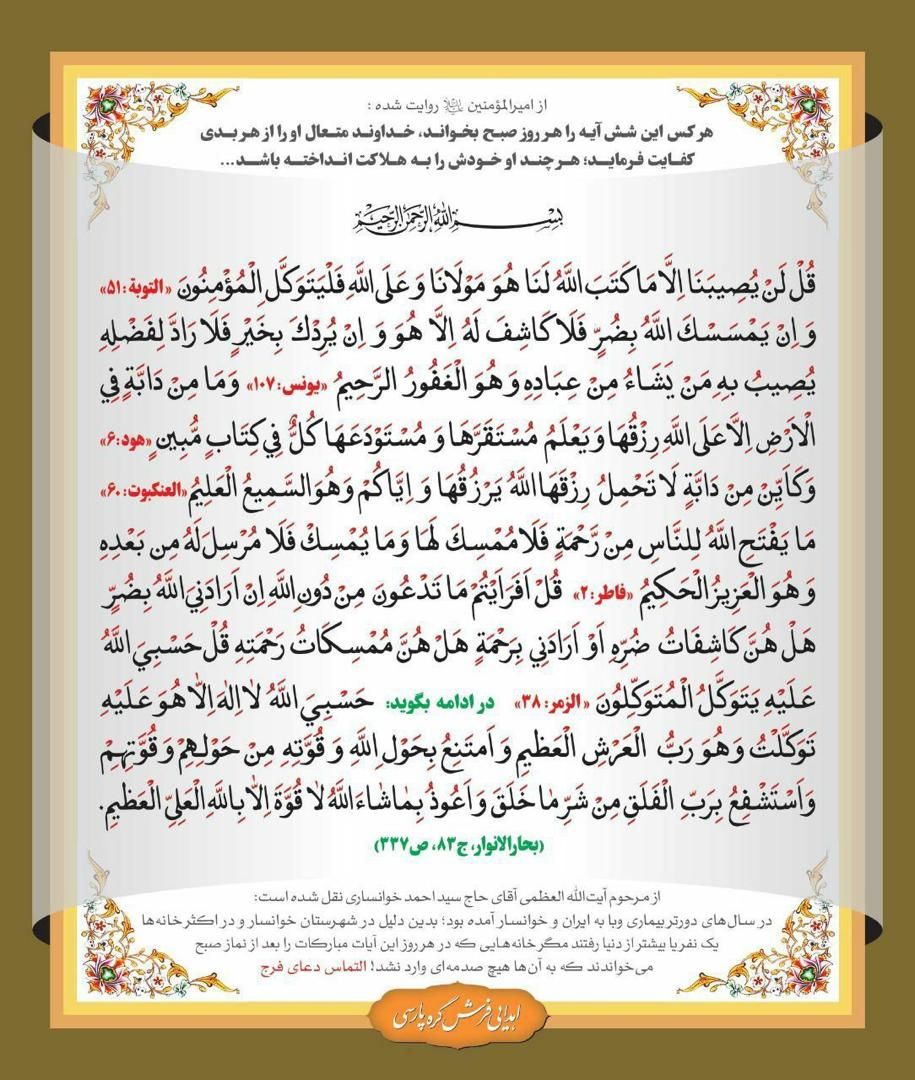 از امیرالمؤمنین علیه‌السلام روایت شده :
هر کس این شش آیه را هر روز صبح بخواند، خداوند متعال او را از هر بدی
کفایت فرماید؛ هر چند او خودش را به هلاکت انداخته باشد...
بِسْمِ اللّٰهِ الرَّحْمٰنِ الرَّحِیْمِ
قُلْ لَنْ یُصِیبَنَا اِلَّا مَا کَتَبَ اللَّهُ لَنَا هُوَ مَوْلَانَا وَ عَلَی اللَّهِ فَلْیَتَوَکَّلِ الْمُؤْمِنُونَ «التوبة: ۵۱»
وَ اِنْ یَمْسَسْكَ اللَّهُ بِضُرٍّ فَلَا کَاشِفَ لَهُ اِلَّا هُوَ وَ اِنْ یُرِدْكَ بِخَیْرٍ فَلَا رَادَّ لِفَضْلِهِ
یُصِیبُ بِهِ مَنْ یَشَاءُ مِنْ عِبَادِهِ وَ هُوَ الْغَفُورُ الرَّحِیمُ «یونس: ۱۰۷» وَ مَا مِنْ دَابَّةٍ فِي
الْاَرْضِ اِلَّا عَلَی اللَّهِ رِزْقُهَا وَ یَعْلَمُ مُسْتَقَرَّهَا وَ مُسْتَوْدَعَهَا کُلٌّ فِي کِتَابٍ مُّبِینٍ «هود: ۶»
وَ کَاَیِّنْ مِنْ دَابَّةٍ لَا تَحْمِلُ رِزْقَهَا اللَّهُ یَرْزُقُهَا وَ اِیَّاکُمْ وَ هُوَ السَّمِیعُ الْعَلِیمُ «العنکبوت: ۶۰»
مَا یَفْتَحِ اللَّهُ لِلنَّاسِ مِنْ رَّحْمَةٍ فَلَا مُمْسِكَ لَهَا وَ مَا یُمْسِكْ فَلَا مُرْسِلَ لَهُ مِن بَعْدِهِ
وَ هُوَ الْعَزِیزُ الْحَکِیمُ «فاطر: ۲» قُلْ اَفَرَاَیْتُمْ مَا تَدْعُونَ مِنْ دُونِ اللَّهِ اِنْ اَرَادَنِيَ اللَّهُ بِضُرٍّ
هَلْ هُنَّ کَاشِفَاتُ ضُرِّهِ اَوْ اَرَادَنِي بِرَحْمَةٍ هَلْ هُنَّ مُمْسِکَاتُ رَحْمَتِهِ قُلْ حَسْبِيَ اللَّهُ
عَلَیْهِ یَتَوَکَّلُ الْمُتَوَکِّلُونَ «الزمر: ۳۸» در ادامه بگوید: حَسْبِيَ اللَّهُ لَا اِلٰهَ اِلَّا هُوَ عَلَیْهِ
تَوَکَّلْتُ وَ هُوَ رَبُّ الْعَرْشِ الْعَظِیمِ وَ اَمتَنِعُ بِحَوْلِ اللَّهِ وَ قُوَّتِهِ مِنْ حَوْلِهِمْ وَ قُوَّتِهِمْ
وَ اَسْتَشْفِعُ بِرَبِّ الْفَلَقِ مِنْ شَرِّ مٰا خَلَقَ وَ اَعُوذُ بِمٰا شٰاءَ اللَّهُ لَا قُوَّةَ اِلَّا بِاللَّهِ الْعَلِيِّ الْعَظِیمِ.
(بحارالانوار، ج۸۳، ص۳۳۷)
از مرحوم آیت‌الله العظمی آقای حاج سید احمد خوانساری نقل شده است:
در سال‌های دورتر بیماری وبا به ایران و خوانسار آمده بود؛ بدین دلیل در شهرستان خوانسار و در اکثر خانه‌ها
یک نفر یا بیشتر از دنیا رفتند مگر خانه‌هایی که در هر روز این آیات مبارکات را بعد از نماز صبح
می‌خواندند که به آن‌ها هیچ صدمه‌ای وارد نشد! التماس دعای فرج
اهدایی فرش گره پارسی